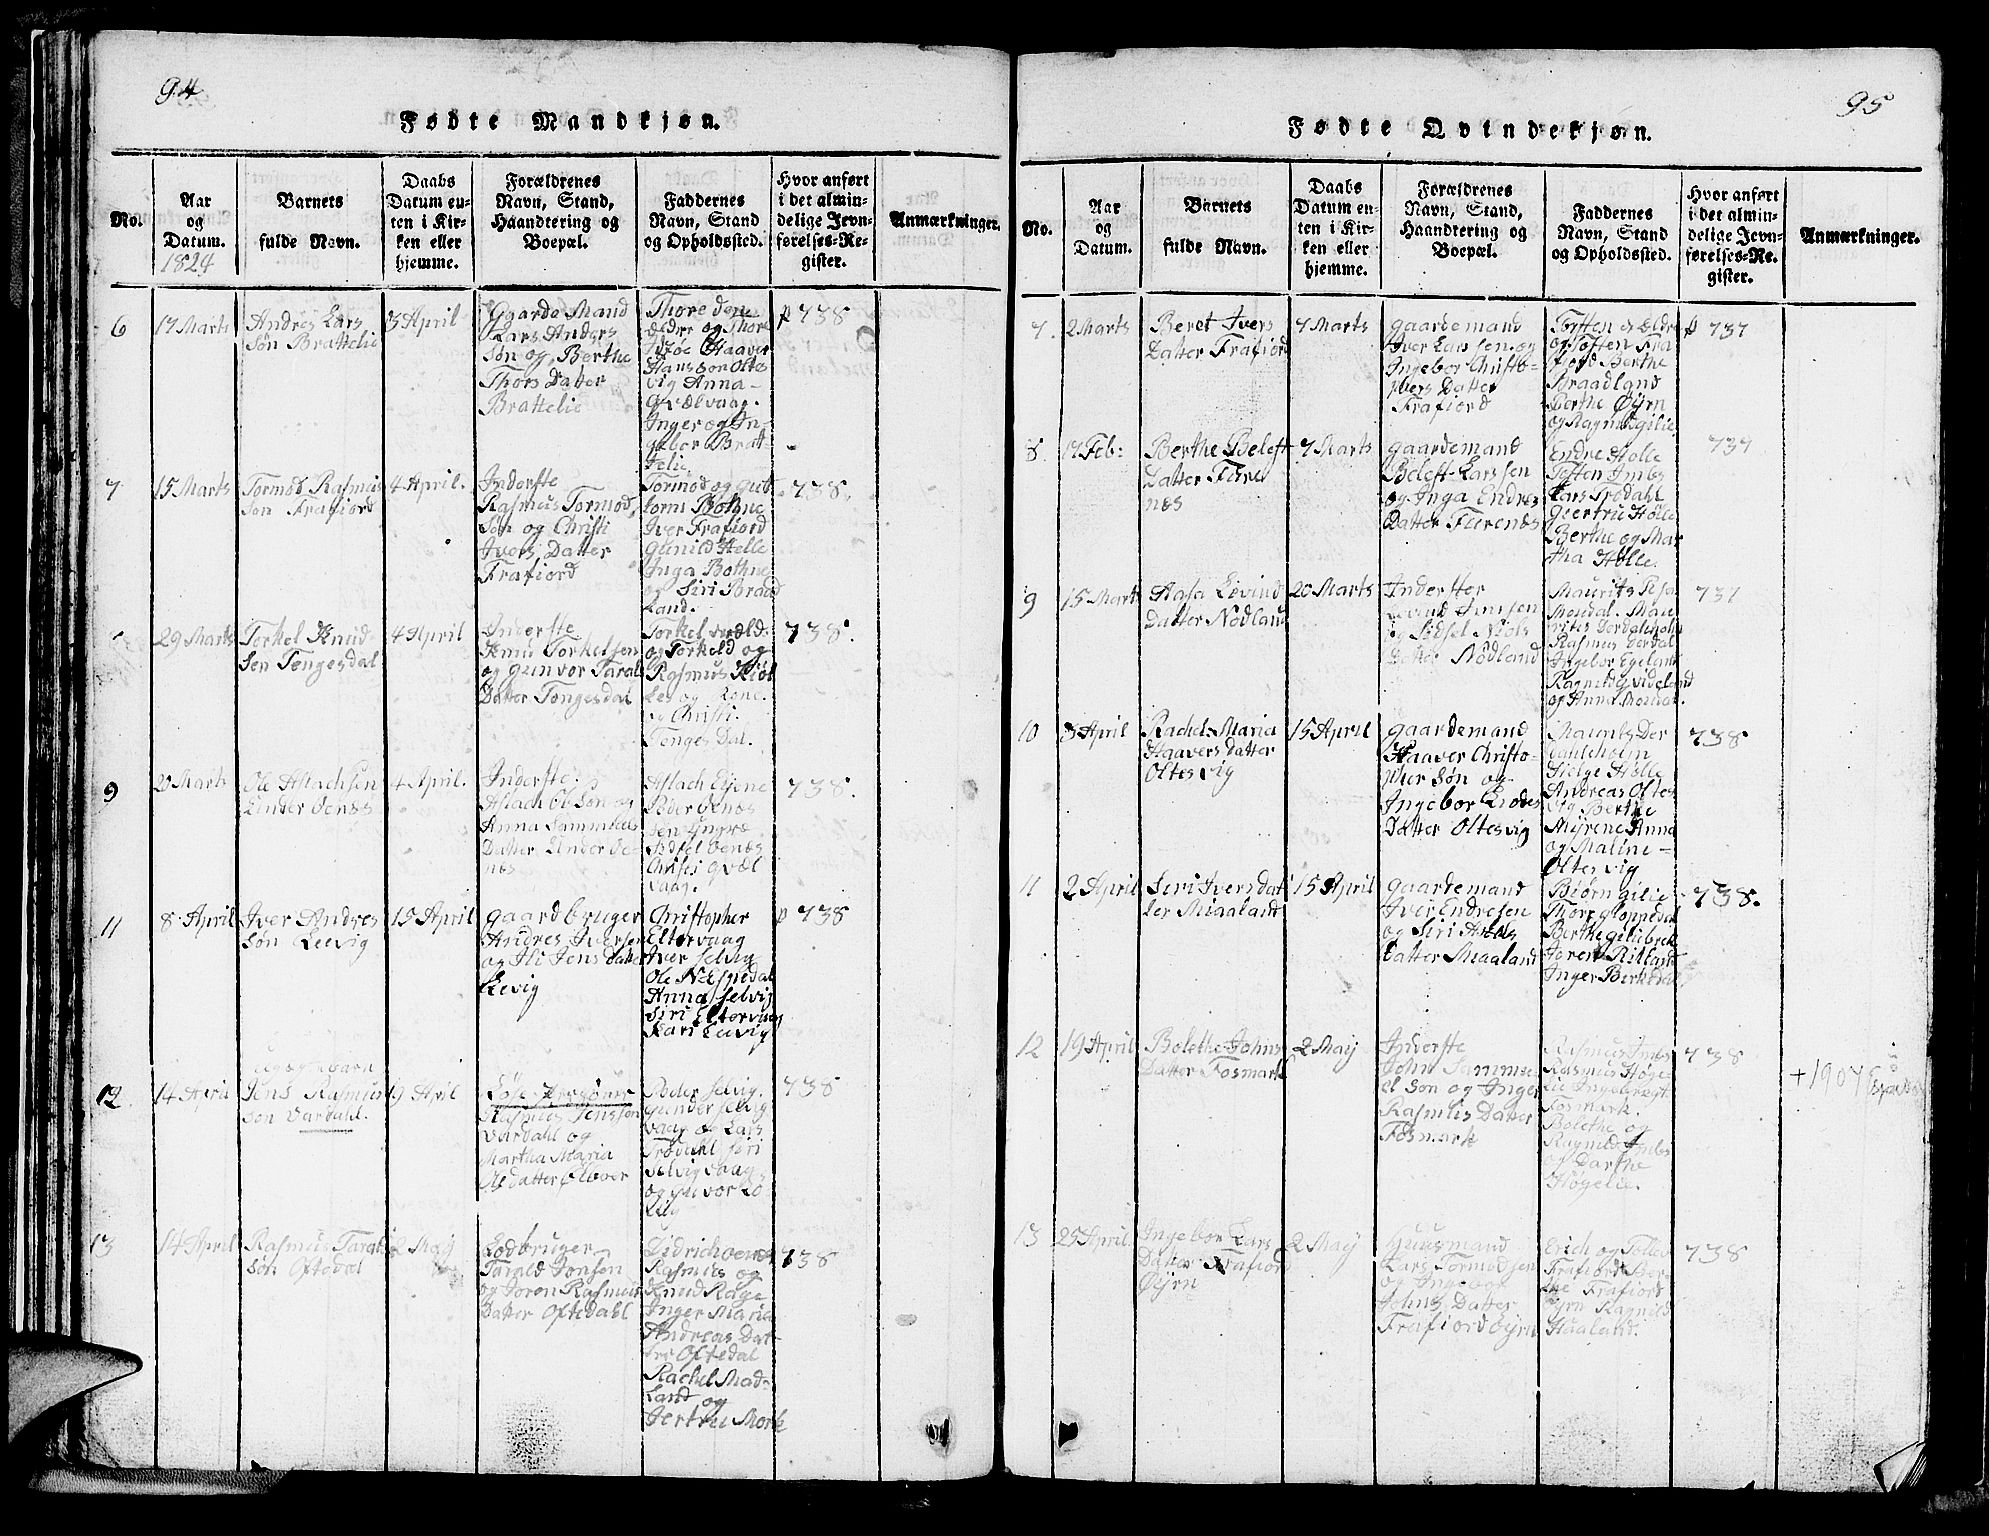 94
Fødte Mandkjøn.
No.
Aar
og
Datum.
1824
Barnets
fulde Navn.
Daabs
Datum en-
ten i Kir-
ken eller
hjemme.
Forældrenes
Navn, Stand,
Haandtering og
Boepæl.
Faddernes
Navn, Stand
og Opholdssted.
Hvor anført
i det almin-
delige Jevn-
førelses-Re-
gister.
Anmærkninger.
6
17 Marts
Andres Lars
søn Brattelie
3 April
Gaarde Mand
Lars Anders
søn og Berthe
Thors Datter
Brattelie
Thore
ældre og Thore
Haaver
Hansson Oltes
vig Anna
Qvælvaag.
Inger og In-
gebor Brat
telie
p 738
7
15 Marts
Tormod Rasmus
søn Frafiord
4 April.
Inderste
Rasmus Tormod
søn og Christi
Ivers Datter
Frafiord
Tormod og Gut
torm Bothne
Iver Frafiord
Gunild Helle
Inga Bothne
og Siri Braad
land.
738.
29 Marts
Torkel Knud-
sen Tengesdal
4 April
Inderste
Knud Torkelsen
og Gunvor Taral
Datter Tengesdal
Torkel
og Torkeld og
Rasmus Kiøl
les og Lene
og Christi
Tenges Dal.
738.
9
Marts
Ole Aslachsen
Under Venæs
4 April.
Inderste
Aslach Olsøn og
Anna Sammuels
Datter Under Ve
næs
Aslach Eyene
Peder Venæs
Sidsel Venæs
Christi Qvæl
vaag.
738.
11
8 April
Iver Andres
søn Leevig
15 April
Gaardbruger
Andres Iversen
og Ili Jens datter
Levig
Christopher
Eltervaag
Iver Selvig
Ole N Espedal
Anna Selvig
Siri Eltervaag
Kari Levig
p 738
12
14 April
uægte barn
Jens Rasmus
søn Vardahl.
19 April
Rasmus Jenssøn
Vardahl og
Martha Maria
Olsdatter
Peder Selvig.
Gunder Selvig
vaag og Lars
Trødahl Siri
Selvigvaag,
738
13
14 April
Rasmus Taral
søn Oftedal
2 May
Lodbruger
Tarald Jonsen
og Joren Rasmus
Datter Oftedahl
Didrich
Rasmus og
Knud Rage
Inger Maria
Andreas Dat
tre Oftedal
Rachel Mad-
land og
Jertru Mork
738
95
Fødte Qvindekjøn.
No.
Aar
og
Datum.
Barnets
fulde Navn.
Daabs
Datum en-
ten i Kir-
ken eller
hjemme.
Forældrenes
Navn, Stand,
Haandtering og
Boepæl.
Faddernes
Navn, Stand
og Opholdssted.
Hvor anført
i det almin-
delige Jevn-
førelses-Re-
gister.
Anmærkninger.
7.
2 Marts
Beret Ivers
Datter Frafiord
7 Marts
Gaardemand
Iver Larssen og
Ingebor Christo-
phers Datter
Frafiord
Toften ældre
og Toften Fra
fiord Berthe
Braadland
Berthe Øyrn
og Ragnild Gilie
p 737
8
17 Feb:
Berthe Beleff
Datter Fløre
næs
7 Marts
Gaardemand
Beleff Larssen
og Inga Endres
Datter Flørenæs
Endre Hølle
Toften Imbs
Lars Trødahl
Giertru Hølle
Berthe og Mar
tha Hølle.
737
9
15 Marts
Aasa Eivind
Datter Nødland
20 Marts
Inderster
og Sidsel Niels
Datter Nødland
Maurits
Rasmus Derdal
Ingebor Egeland
Ragnild Qvideland
og Anna
737
10
3 April
Rachel Maria
Haavers Datter
Oltesvig
15 April
Gaardemand
Haaver Christo-
pher søn og
Ingebor Endres
Datter Oltesvig
Maurits Der
dahlholm
Helge Hølle
Andreas Oltes
vig Berthe
Myrene Anna
og Maline
Oltesvig
738
11
2 April
Siri Iversdat
ter Miaaland
15 April
Gaardemand
Iver Endresen
og Siri
Datter Miaaland
Biørn Gilie
Thore Gloppedal
Berthe Giliebrek
Joren Ritland
Inger Birkedal
738.
12
19 April
Bolethe Johns
Datter Fosmark
2 May
Inderste
John Sammu
el søn og Inger
Rasmus Datter
Fosmark
Rasmus Imbs
Rasmus Høge
lie Ingebregt
Fosmark.
Bolethe og
Ragnild Imbs
og Dorthe
Høgelie.
738
+1907 Espedal
13
25 April.
Ingebor Lars
Datter Frafiord
Øyrn
2 May
Huusmand
Lars Tormodsen
og Ingebor
Johns Datter
Frafiord Øyrn
Erich og Tolles
Frafiord Ber
the Frafiord
Øyrn Ragnild
Haaland.
738